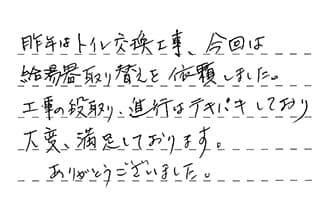 昨年はトイレ交換工事、今回は
給湯器取り替えを依頼しました。
工事の段取り、進行はテキパキしており
大変、満足しております。
ありがとうございました。